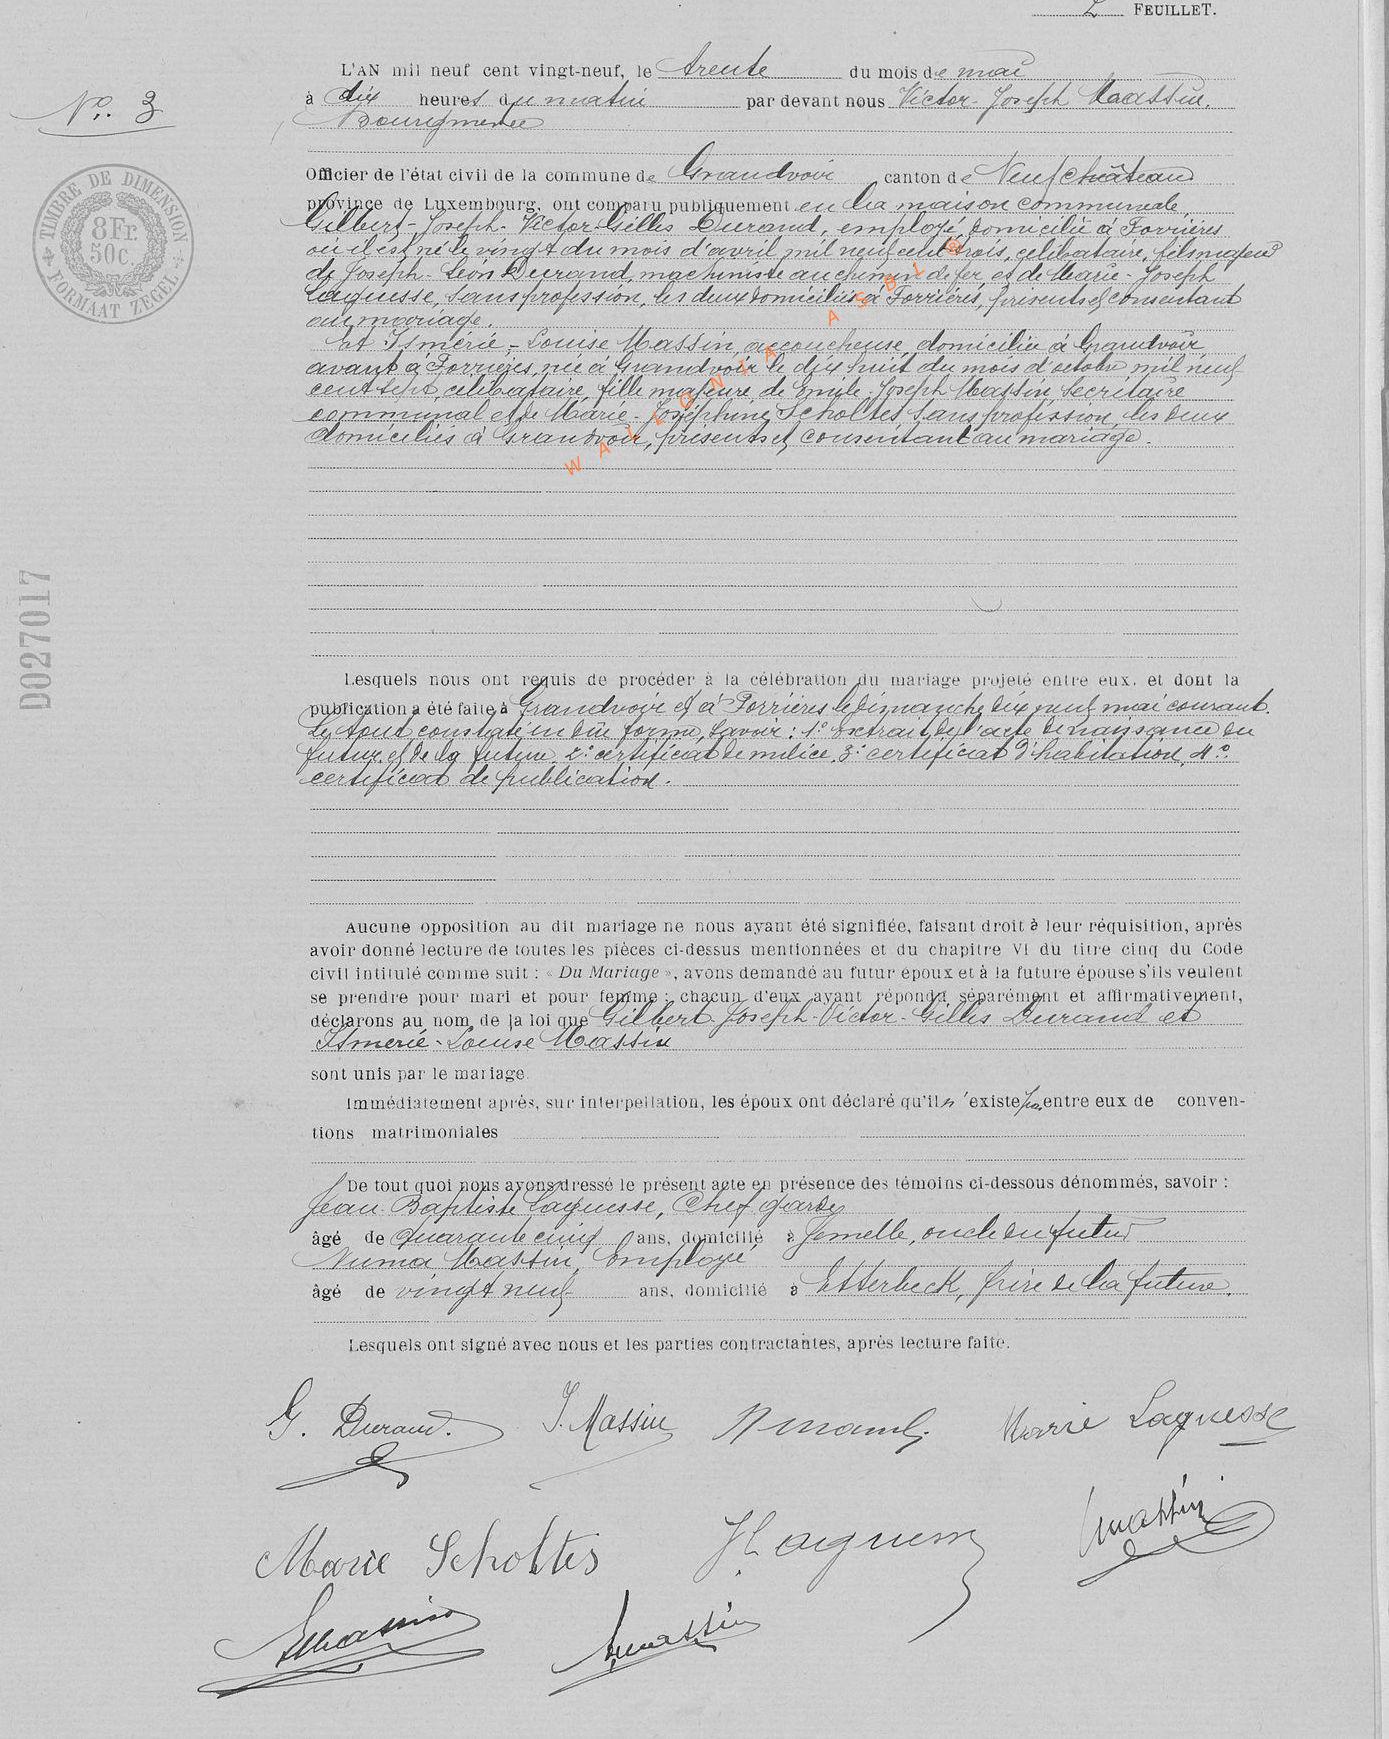 2 FEUILLET.
L'AN mil neuf cent vingt-neuf, le trente du mois de mai
No. 3
à dix heures du matin par devant nous Victor-Joseph Massin,
Bourgmestre
TIMBRE DE DIMENSION
8Fr.
50c.
FORMAAT ZEGEL
Officier de l'état civil de la commune de Grandvoir canton de Neufchâteau
province de Luxembourg, ont comparu publiquement en la maison communale,
Gilbert-Joseph-Victor-Gilles Durand, employé, domicilié à Forrières
où il est né le vingt du mois d'avril mil neuf cent trois, célibataire, fils majeur
de Joseph-Léon Durand, machiniste au chemin de fer, et de Marie-Joseph
Laguesse, sans profession, les deux domiciliés à Forrières, présents et consentant
au mariage.
Et Ismérie-Louise Massin, accoucheuse, domiciliée à Grandvoir
avant à Forrières, née à Grandvoir le dix huit du mois d'octobre mil neuf
cent sept, célibataire, fille majeure de Emile-Joseph Massin, Secrétaire
communal et de Marie-Joséphine Scholtes, sans profession, les deux
domiciliés à Grandvoir, présents et consentant au mariage.
WALLONIA ASBL ©
D027017
Lesquels nous ont requis de procéder à la célébration du mariage projeté entre eux, et dont la
publication a été faite à Grandvoir et à Forrières le dimanche dix neuf mai courant.
Le tout constaté en dûe forme, savoir: 1° extrait de l'acte de naissance du
futur et de la future, 2° certificat de milice, 3° certificat d'habitation, 4°
certificat de publication.
Aucune opposition au dit mariage ne nous ayant été signifiée, faisant droit à leur réquisition, après
avoir donné lecture de toutes les pièces ci-dessus mentionnées et du chapitre VI du titre cinq du Code
civil intitulé comme suit : « Du Mariage », avons demandé au futur époux et à la future épouse s'ils veulent
se prendre pour mari et pour femme ; chacun d'eux ayant répondu séparément et affirmativement,
déclarons au nom de la loi que Gilbert-Joseph-Victor-Gilles Durand et
Ismérie-Louise Massin
sont unis par le mariage.
Immédiatement après, sur interpellation, les époux ont déclaré qu'il n'existe pas entre eux de conven-
tions matrimoniales
De tout quoi nous avons dressé le présent acte en présence des témoins ci-dessous dénommés, savoir :
Jean-Baptiste Laguesse, Chef garde
âgé de quarante cinq ans, domicilié à Jemelle, oncle du futur
Numa Massin, Employé
âgé de vingt neuf ans, domicilié à Etterbeek, frère de la future.
Lesquels ont signé avec nous et les parties contractantes, après lecture faite.
G. Durand. I. Massin Marie Laguesse
Marie Scholtes J Laguesse Massin
Massin Massin